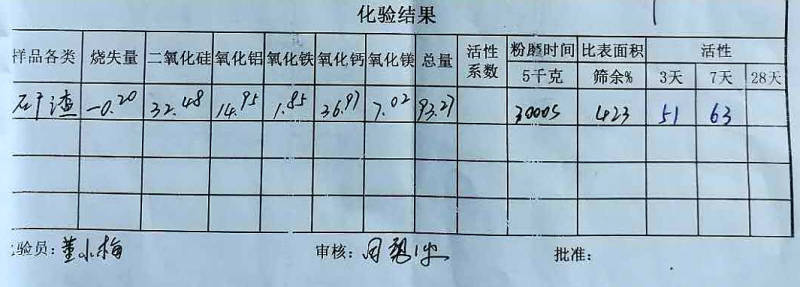 化验结果
样品各类 烧失量 二氧化硅 氧化铝 氧化铁 氧化钙 氧化镁 总量 活性系数 粉磨时间 比表面积 活性
5千克 筛余% 3天 7天 28天
矿渣 -0.20 32.48 14.95 1.85 36.97 7.02 93.27 3000S 423 51 63
验员: 董小梅 审核: 周 批准: